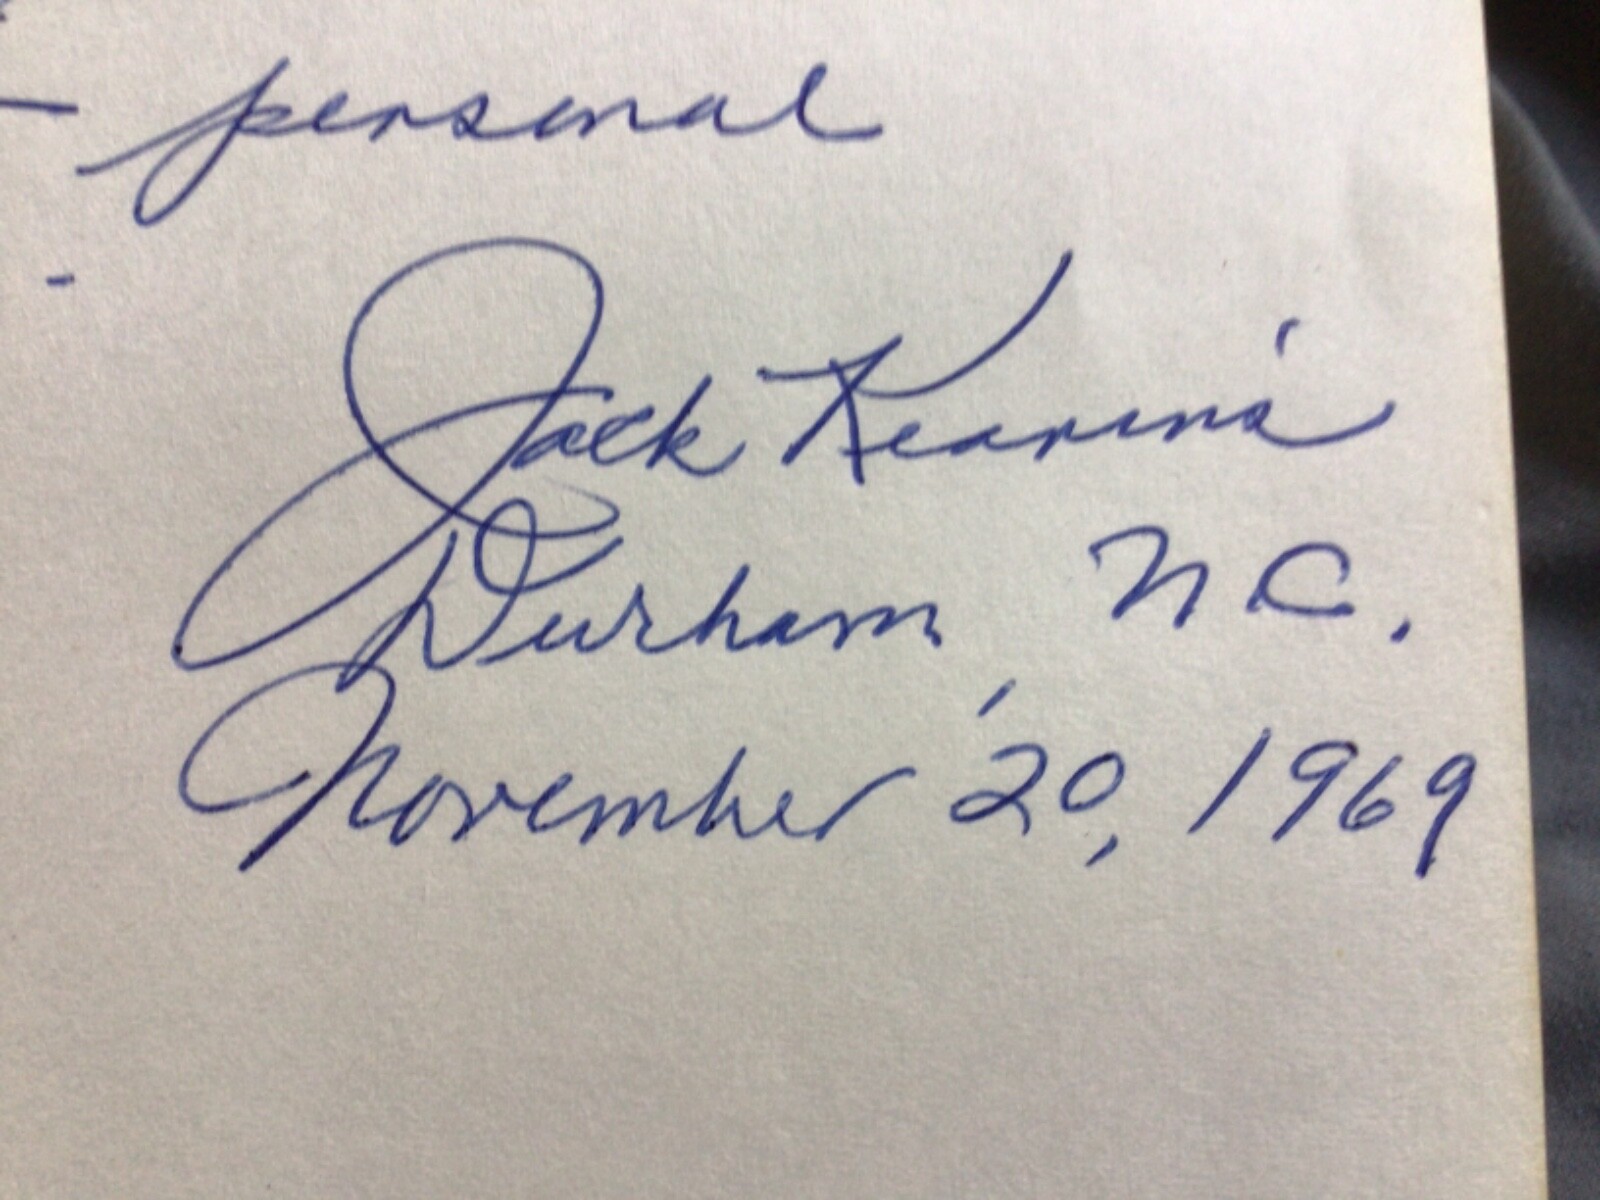 — personal
-
Jack Kearins
Durham, N C.
November 20, 1969